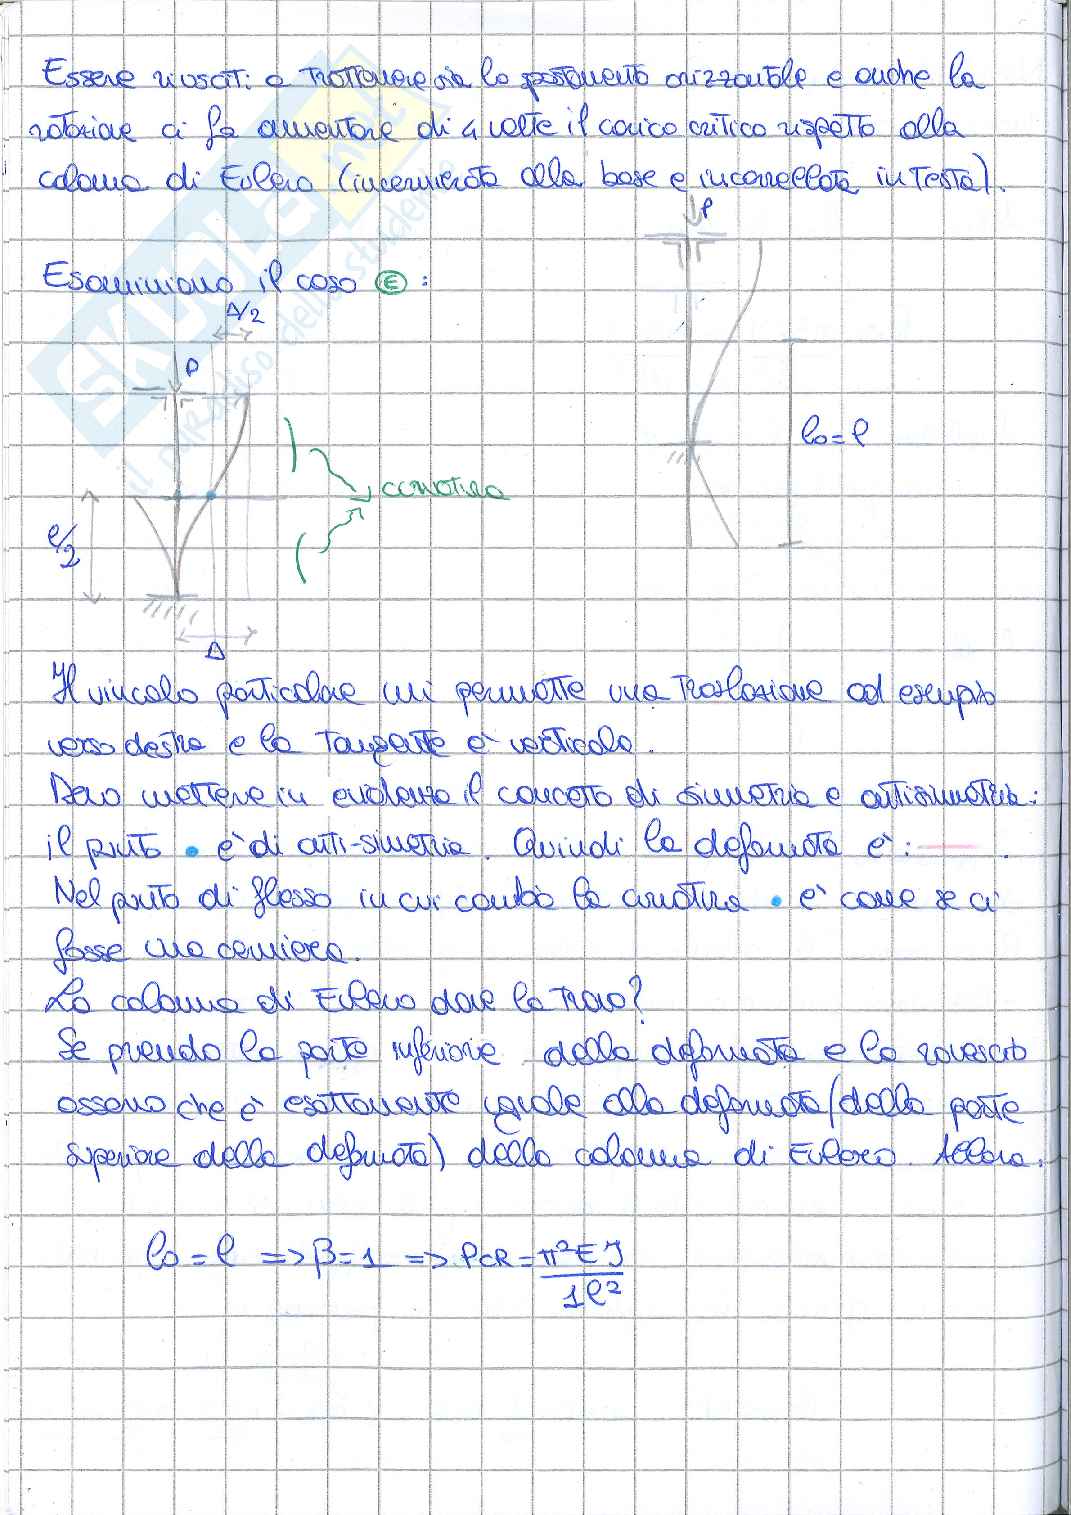 Essere riusciti a trattenere sia lo spostamento orizzontale e anche la
rotazione ci fa aumentare di 4 volte il carico critico rispetto alla
colonna di Eulero (incernierata alla base e incarrellata in testa).
P
Esaminiamo il caso E :
Δ/2
P
lo=l
curvatura
l/2
Δ
Il vincolo particolare mi permette una traslazione ad esempio
verso destra e la tangente è verticale.
Devo mettere in evidenza il concetto di simmetria e antisimmetria:
il punto • è di anti-simetria. Quindi la deformata è: .
Nel punto di flesso in cui cambia la curvatura • è come se ci
fosse una cerniera.
La colonna di Eulero dove la trovo?
Se prendo la parte inferiore della deformata e la rovescio
osservo che è esattamente uguale alla deformata (della parte
superiore della deformata) della colonna di Eulero. Allora:
lo = l => β=1 => PCR = π²EJ
1l²
SKUOLA.net
il paradiso dello studente